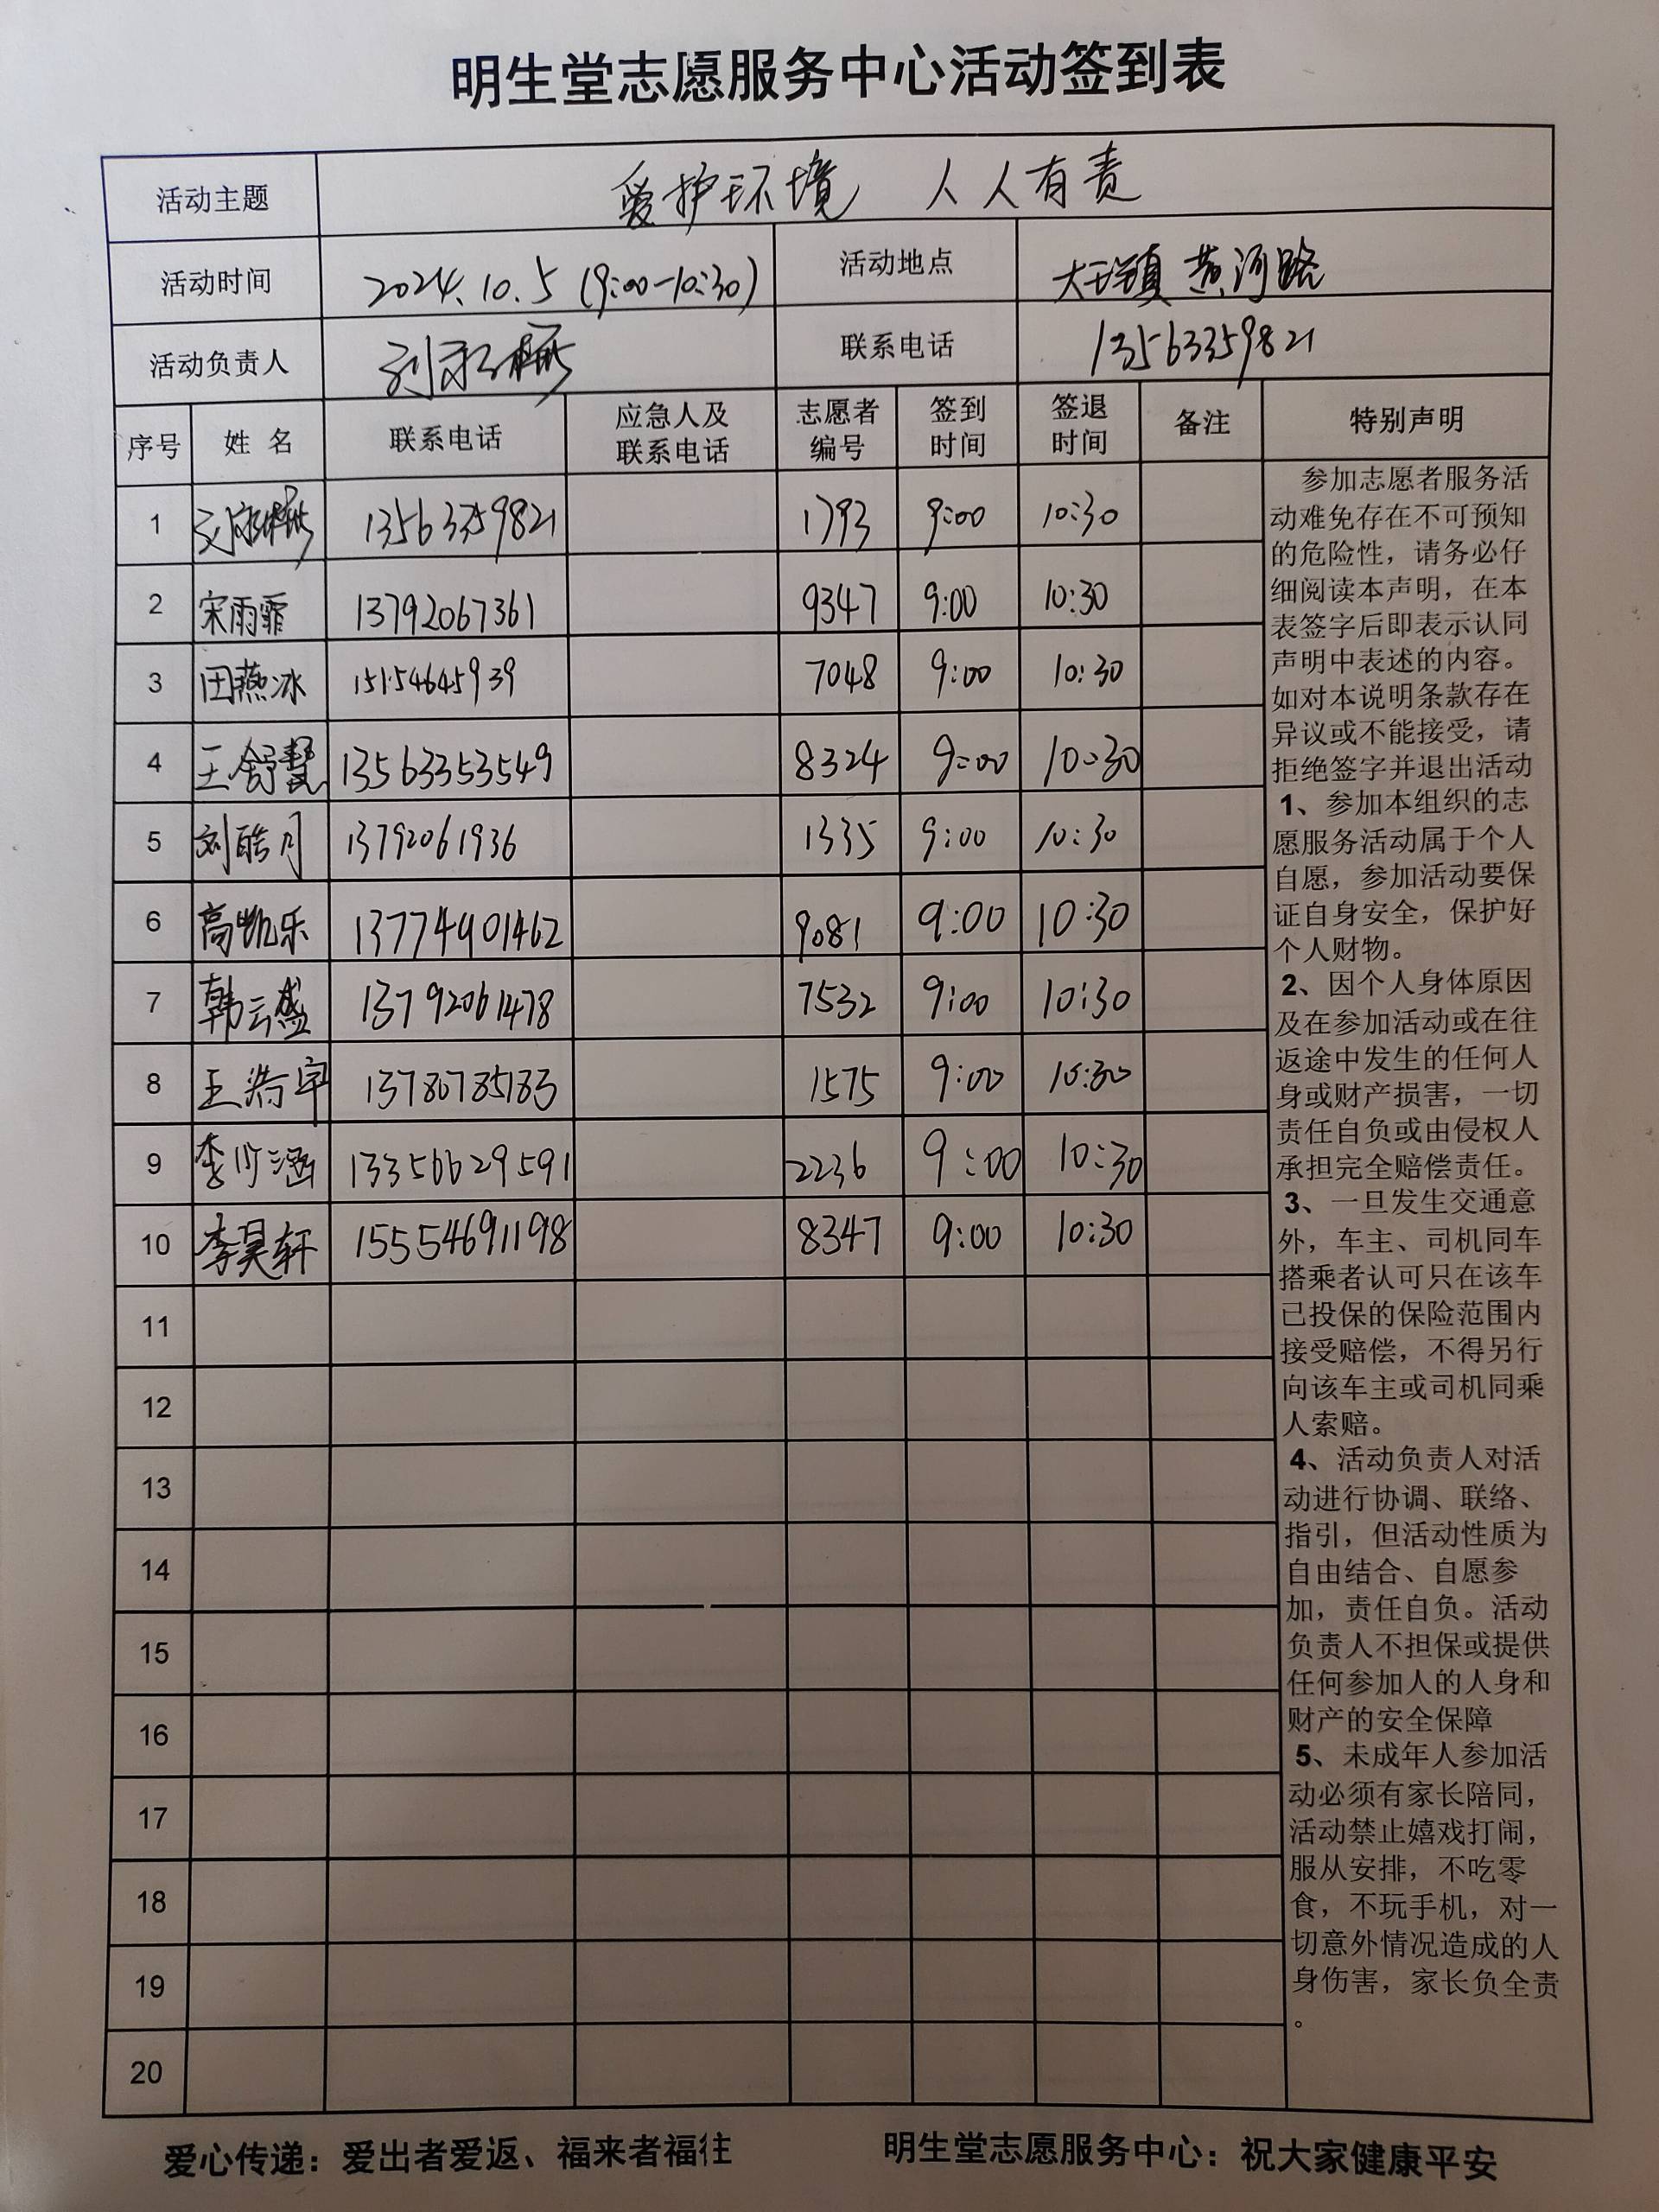 明生堂志愿服务中心活动签到表
活动主题 爱护环境 人人有责
活动时间 2024.10.5 (9:00-10:30) 活动地点 大王镇 黄河路
活动负责人 刘 联系电话 13563359821
序号 姓名 联系电话 应急人及联系电话 志愿者编号 签到时间 签退时间 备注 特别声明
1 13563359821 1793 9:00 10:30
2 宋雨霏 13792067361 9347 9:00 10:30
3 田燕冰 15154645939 7048 9:00 10:30
4 王舒慧 13563353549 8324 9:00 10:30
5 刘皓月 13792061936 1335 9:00 10:30
6 高凯乐 13774901462 9081 9:00 10:30
7 韩云盛 13792061478 7532 9:00 10:30
8 王浩宇 13780785183 1575 9:00 10:30
9 李 涵 13356629591 2236 9:00 10:30
10 李昊轩 15554691198 8347 9:00 10:30
11
12
13
14
15
16
17
18
19
20
参加志愿者服务活
动难免存在不可预知
的危险性，请务必仔
细阅读本声明，在本
表签字后即表示认同
声明中表述的内容。
如对本说明条款存在
异议或不能接受，请
拒绝签字并退出活动
1、参加本组织的志
愿服务活动属于个人
自愿，参加活动要保
证自身安全，保护好
个人财物。
2、因个人身体原因
及在参加活动或在往
返途中发生的任何人
身或财产损害，一切
责任自负或由侵权人
承担完全赔偿责任。
3、一旦发生交通意
外，车主、司机同车
搭乘者认可只在该车
已投保的保险范围内
接受赔偿，不得另行
向该车主或司机同乘
人索赔。
4、活动负责人对活
动进行协调、联络、
指引，但活动性质为
自由结合、自愿参
加，责任自负。活动
负责人不担保或提供
任何参加人的人身和
财产的安全保障
5、未成年人参加活
动必须有家长陪同，
活动禁止嬉戏打闹，
服从安排，不吃零
食，不玩手机，对一
切意外情况造成的人
身伤害，家长负全责
。
爱心传递：爱出者爱返、福来者福往 明生堂志愿服务中心：祝大家健康平安